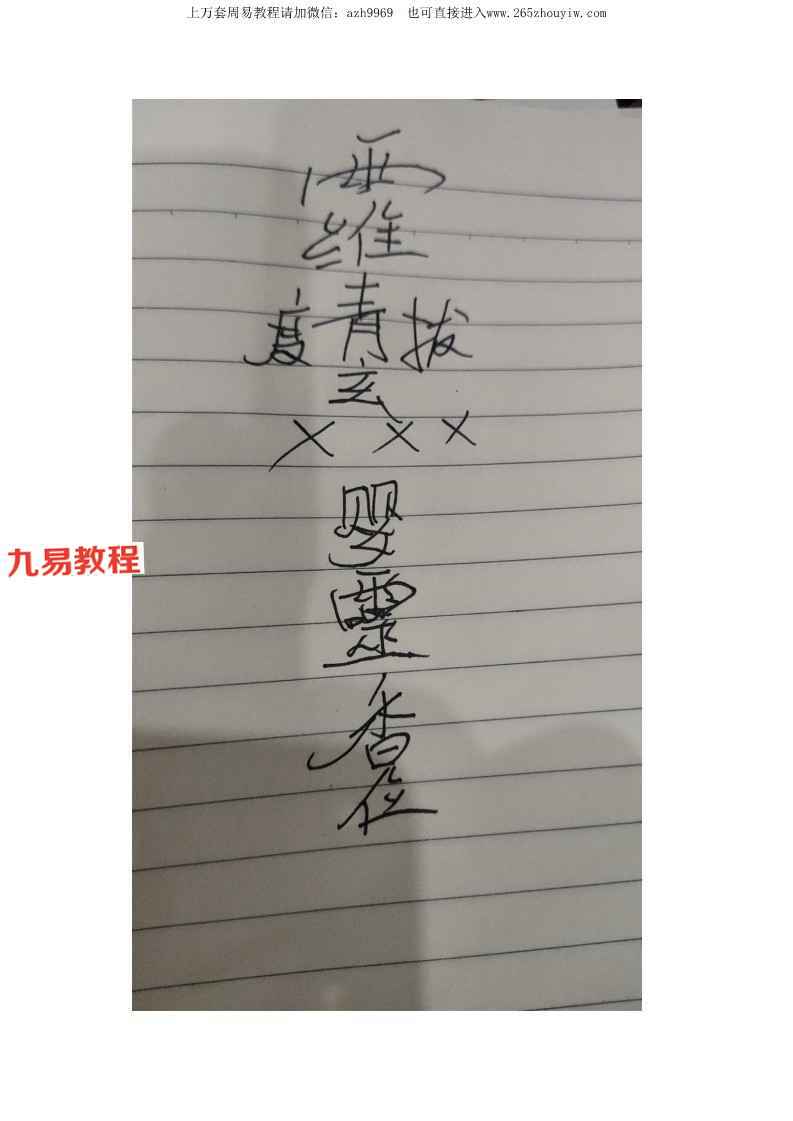 上万套周易教程请加微信：azh9969 也可直接进入www.265zhouyiw.com
雨
維
度 青 拔
玄
× × ×
婴
靈
香
位
九易教程